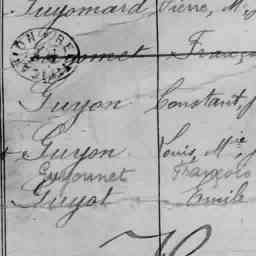 Guyomard Pierre, M
Guyon Constant,
Guyon Louis, Mie
Guyonnet François
Guyot Emile